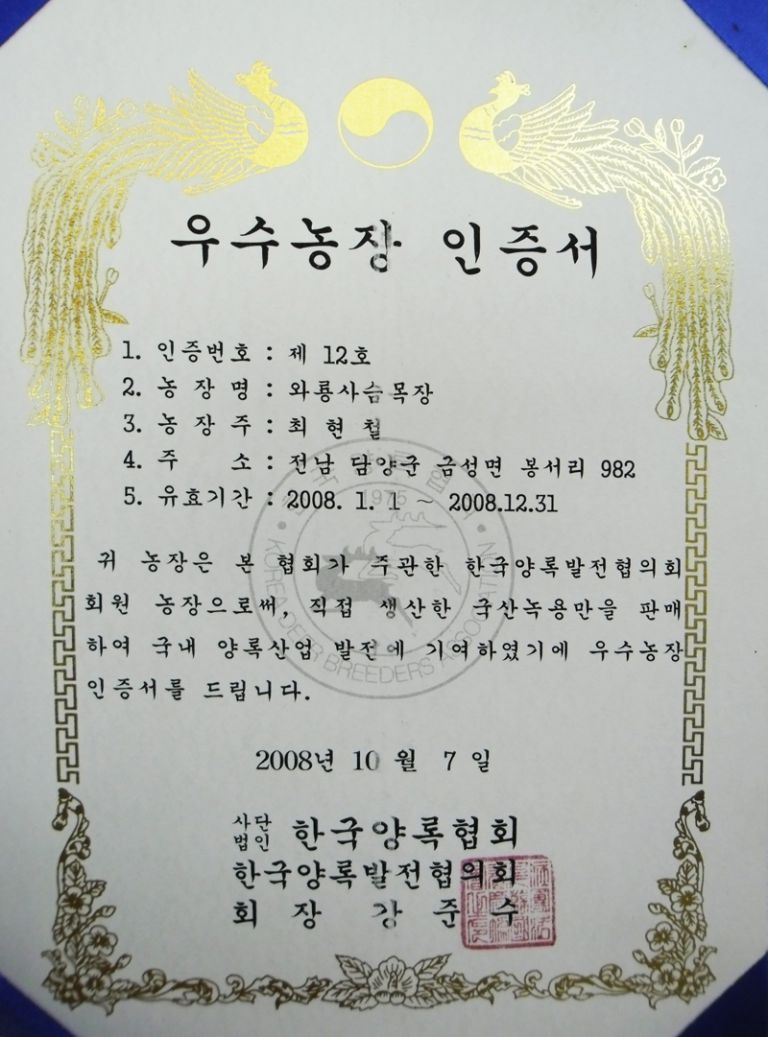 우수농장 인증서
1. 인증번호 : 제 12호
2. 농 장 명 : 와룡사슴목장
3. 농 장 주 : 최 현 철
4. 주 소 : 전남 담양군 금성면 봉서리 982
5. 유효기간 : 2008. 1. 1 ~ 2008.12.31
1975
KOREA DEER BREEDERS ASSOCIATION
귀 농장은 본 협회가 주관한 한국양록발전협의회
회원 농장으로써, 직접 생산한 국산녹용만을 판매
하여 국내 양록산업 발전에 기여하였기에 우수농장
인증서를 드립니다.
2008년 10 월 7 일
사단법인 한국양록협회
한국양록발전협의회
회 장 강 준 수